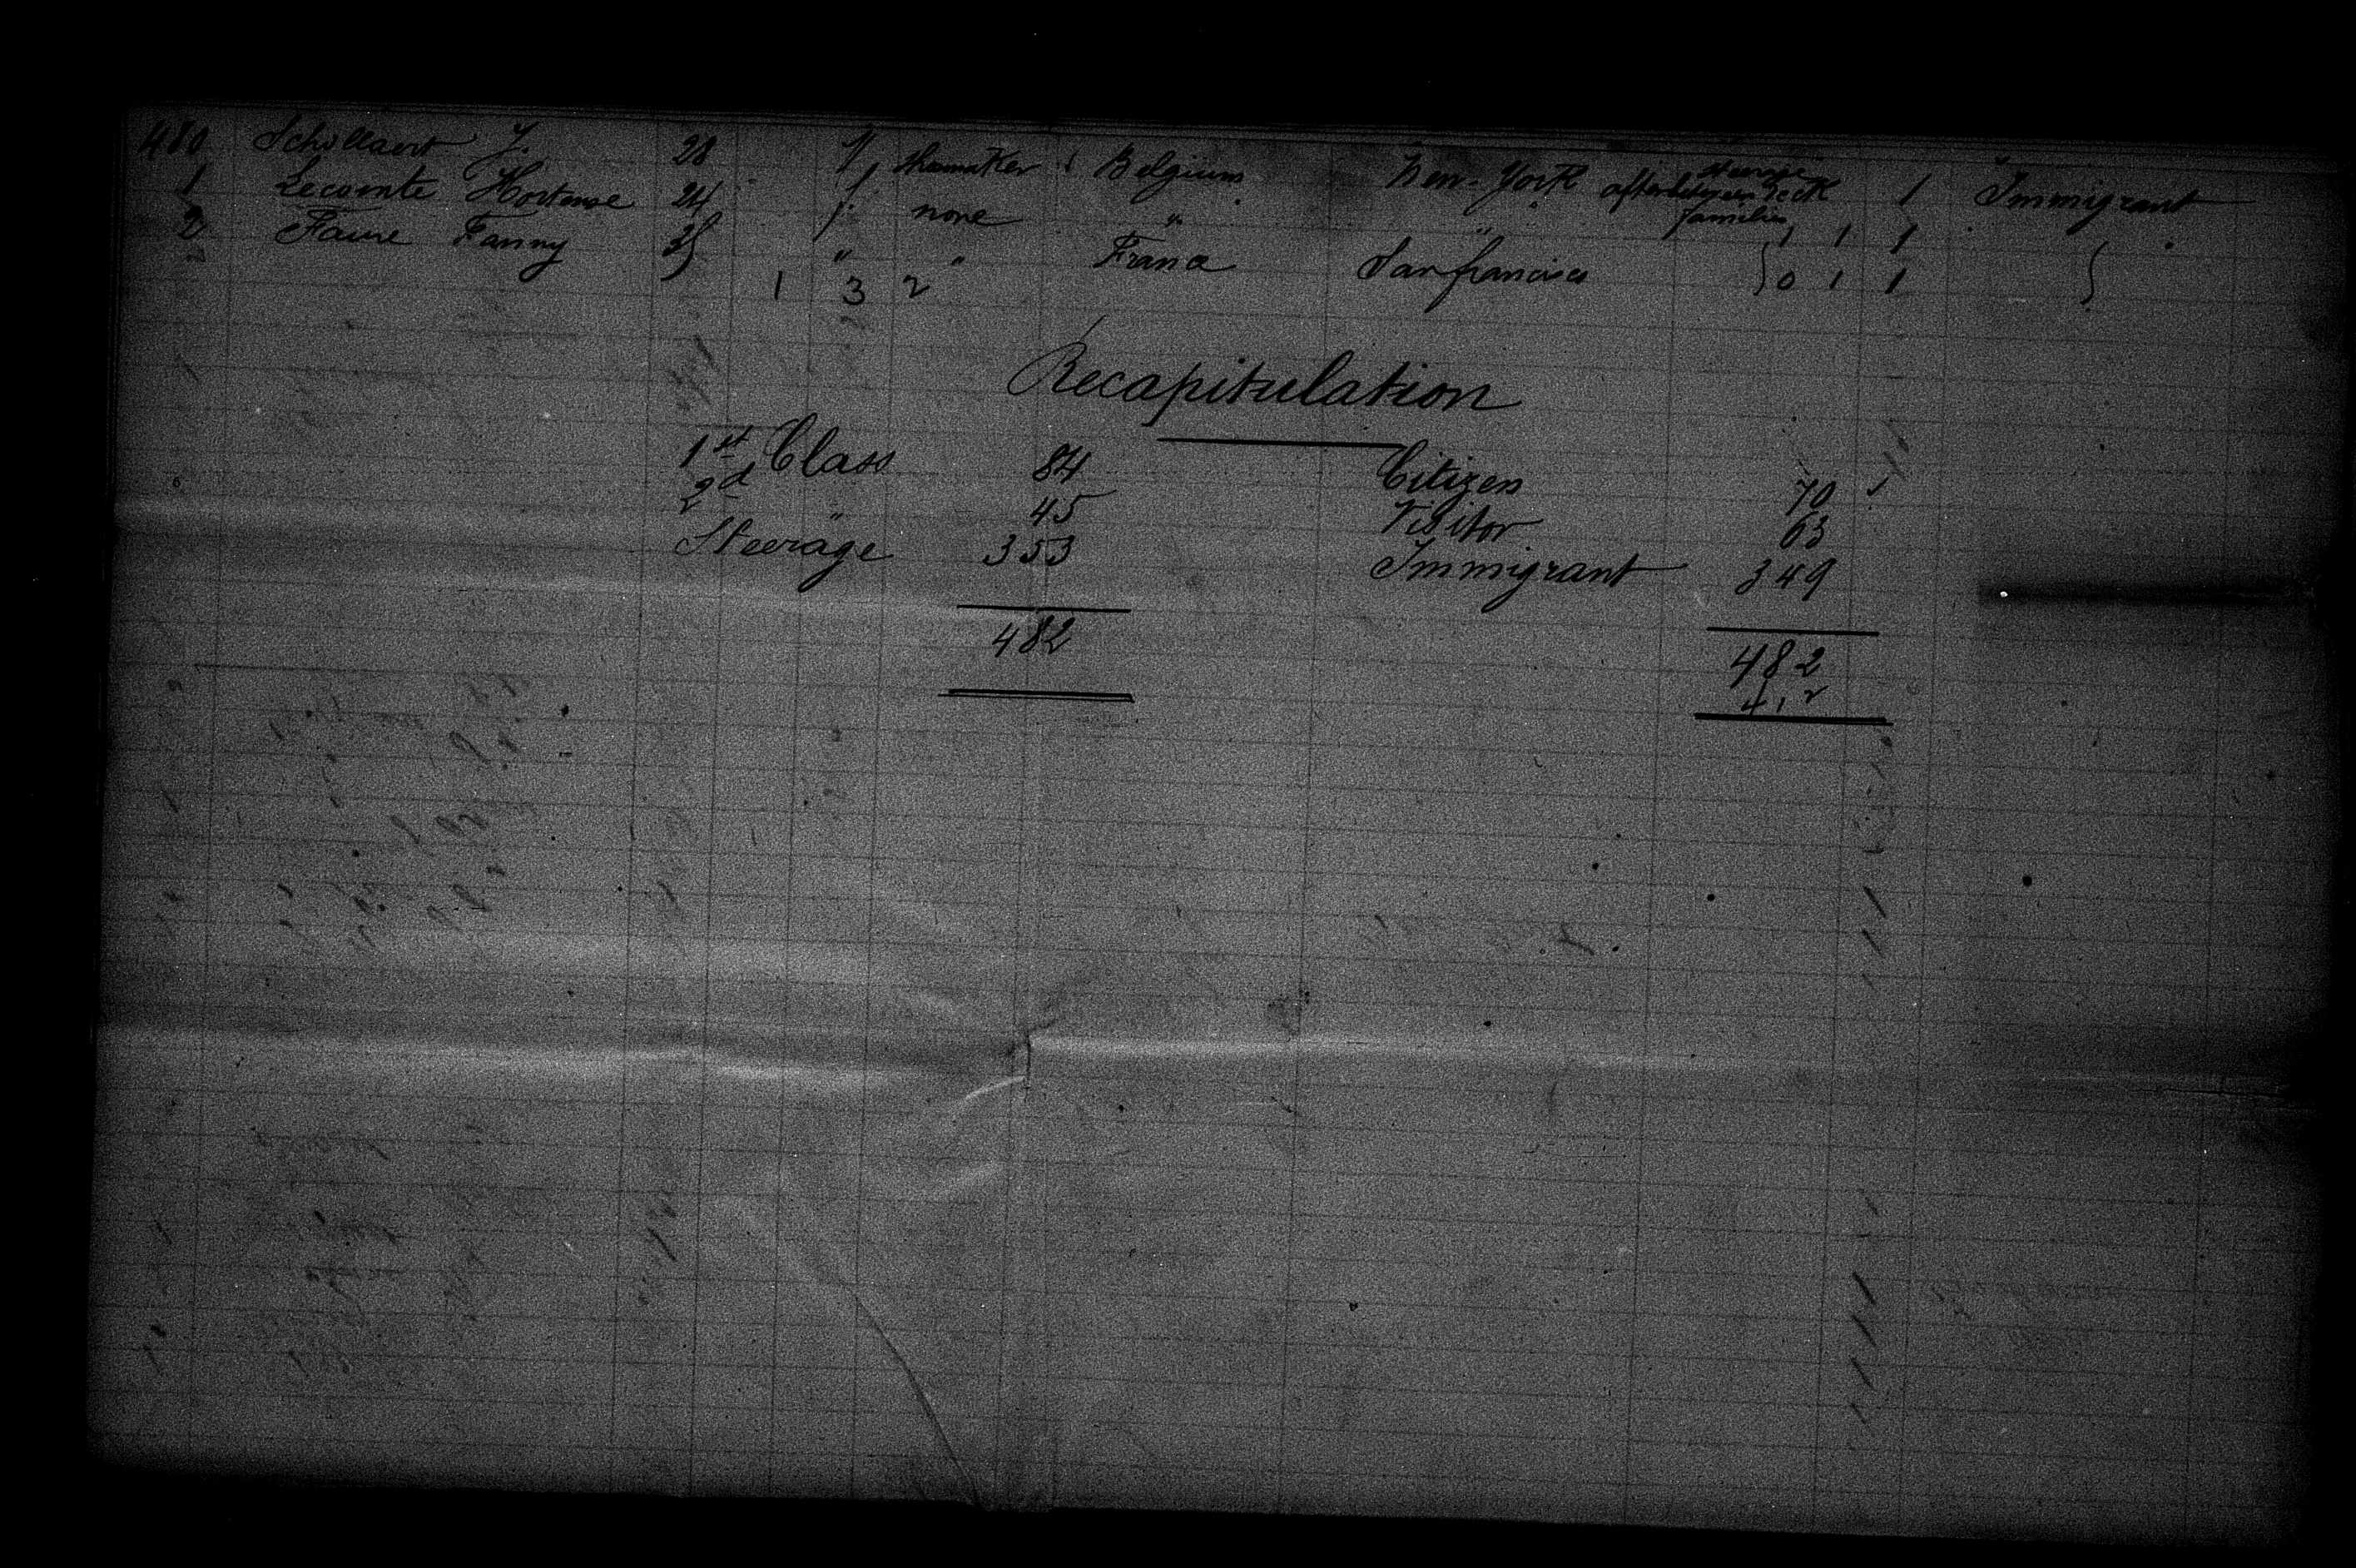 480 Schollaert J. 28 / shumaker Belgium New-York Steerage afterbetween deck families 1 Immigrant
1 Lecomte Hortense 24 / none " " 1 1 1
2 Faure Fanny 25 " " France Sanfrancisco 0 1 1
1 3 2
Recapitulation
1st Class 84 Citizen 70
2d " 45 Visitor 63
Steerage 353 Immigrant 349
482 482